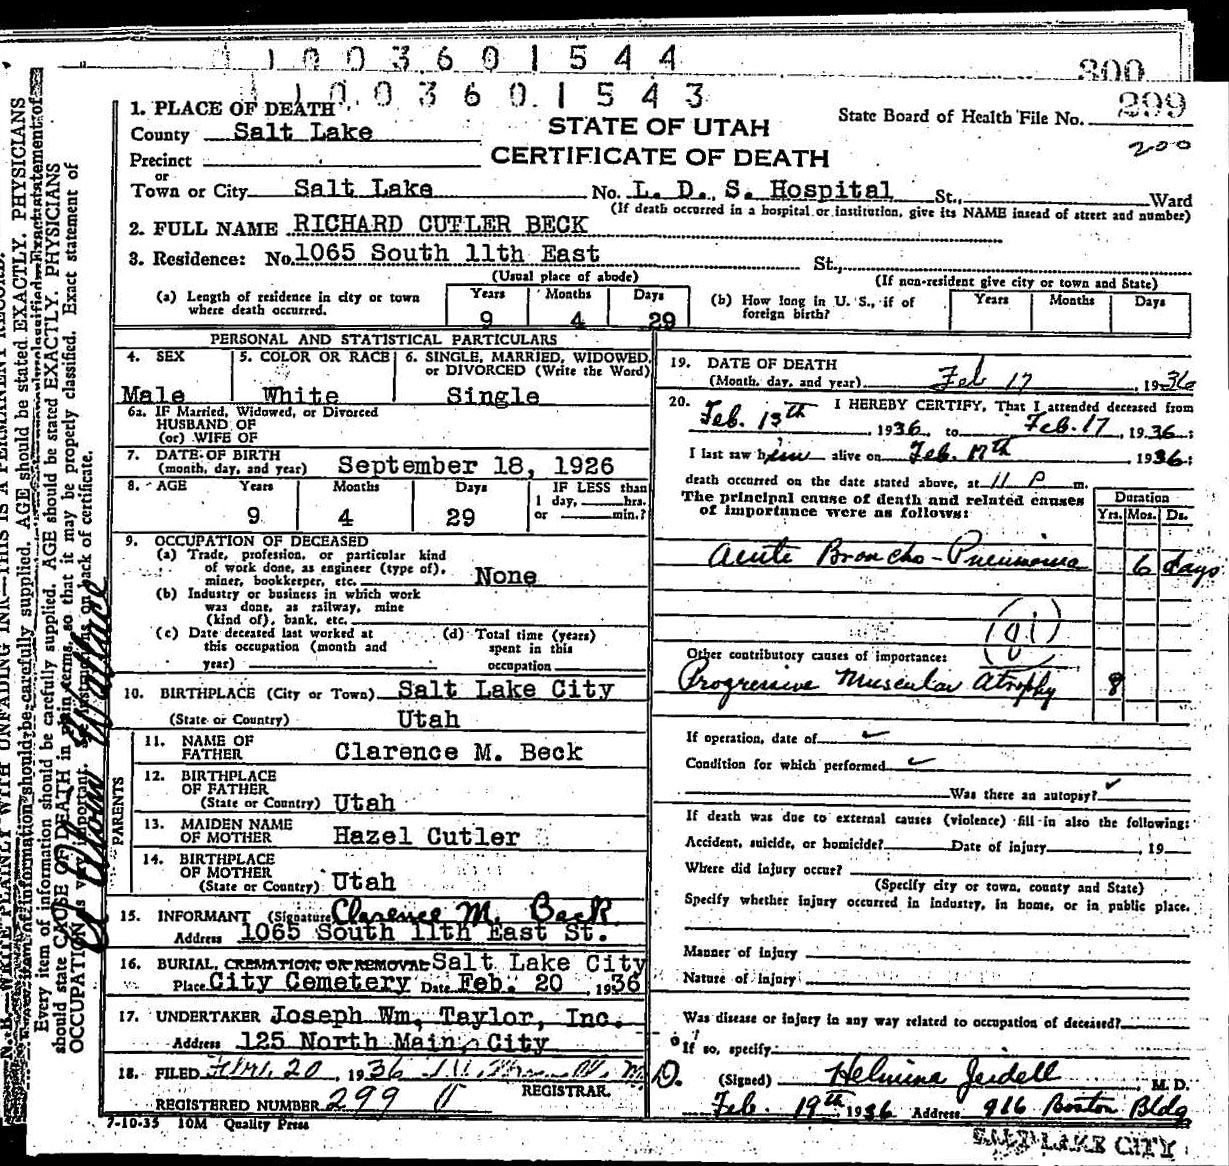 1003601544
300
1003601543
299
200
1. PLACE OF DEATH
County Salt Lake
STATE OF UTAH
State Board of Health File No.
Precinct
CERTIFICATE OF DEATH
or
Town or City Salt Lake No. L. D. S. Hospital St., Ward
(If death occurred in a hospital or institution, give its NAME insead of street and number)
2. FULL NAME RICHARD CUTLER BECK
3. Residence: No. 1065 South 11th East St.,
(Usual place of abode) (If non-resident give city or town and State)
(a) Length of residence in city or town where death occurred.
Years Months Days
9 4 29
(b) How long in U. S., if of foreign birth?
Years Months Days
PERSONAL AND STATISTICAL PARTICULARS
4. SEX
Male
5. COLOR OR RACE
White
6. SINGLE, MARRIED, WIDOWED, or DIVORCED (Write the Word)
Single
6a. IF Married, Widowed, or Divorced
HUSBAND OF
(or) WIFE OF
7. DATE OF BIRTH
(month, day, and year) September 18, 1926
8. AGE Years Months Days
9 4 29
IF LESS than
1 day, hrs.
or min.?
9. OCCUPATION OF DECEASED
(a) Trade, profession, or particular kind
of work done, as engineer (type of),
miner, bookkeeper, etc. None
(b) Industry or business in which work
was done, as railway, mine
(kind of), bank, etc.
(c) Date deceased last worked at
this occupation (month and
year)
(d) Total time (years)
spent in this
occupation
10. BIRTHPLACE (City or Town) Salt Lake City
(State or Country) Utah
PARENTS
11. NAME OF FATHER Clarence M. Beck
12. BIRTHPLACE OF FATHER
(State or Country) Utah
13. MAIDEN NAME OF MOTHER Hazel Cutler
14. BIRTHPLACE OF MOTHER
(State or Country) Utah
15. INFORMANT (Signature Clarence M. Beck
Address 1065 South 11th East St.
16. BURIAL, CREMATION, OR REMOVAL Salt Lake City
Place City Cemetery Date Feb. 20, 1936
17. UNDERTAKER Joseph Wm. Taylor, Inc.
Address 125 North Main, City
18. FILED Feb. 20, 1936 M. D.
REGISTRAR.
REGISTERED NUMBER 299
7-10-35 10M Quality Press
19. DATE OF DEATH
(Month, day, and year) Feb 17, 1936
20. I HEREBY CERTIFY, That I attended deceased from
Feb. 13th, 1936, to Feb. 17, 1936;
I last saw him alive on Feb. 17th 1936;
death occurred on the date stated above, at 11 P m.
The principal cause of death and related causes
of importance were as follows:
Duration
Yrs. Mos. Ds.
Acute Broncho-Pneumonia 6 days
Other contributory causes of importance:
Progressive Muscular Atrophy 8
If operation, date of
Condition for which performed
Was there an autopsy?
If death was due to external causes (violence) fill in also the following:
Accident, suicide, or homicide? Date of injury , 19
Where did injury occur?
(Specify city or town, county and State)
Specify whether injury occurred in industry, in home, or in public place.
Manner of injury
Nature of injury
Was disease or injury in any way related to occupation of deceased?
If so, specify
(Signed) Helmina Jeidell, M. D.
Feb. 19th 1936 Address 916 Boston Bldg
SALT LAKE CITY
N. B.—WRITE PLAINLY WITH UNFADING INK—THIS IS A PERMANENT RECORD.
Every item of information should be carefully supplied. AGE should be stated EXACTLY. PHYSICIANS
should state CAUSE OF DEATH in plain terms, so that it may be properly classified. Exact statement of
OCCUPATION is very important. See instructions on back of certificate.